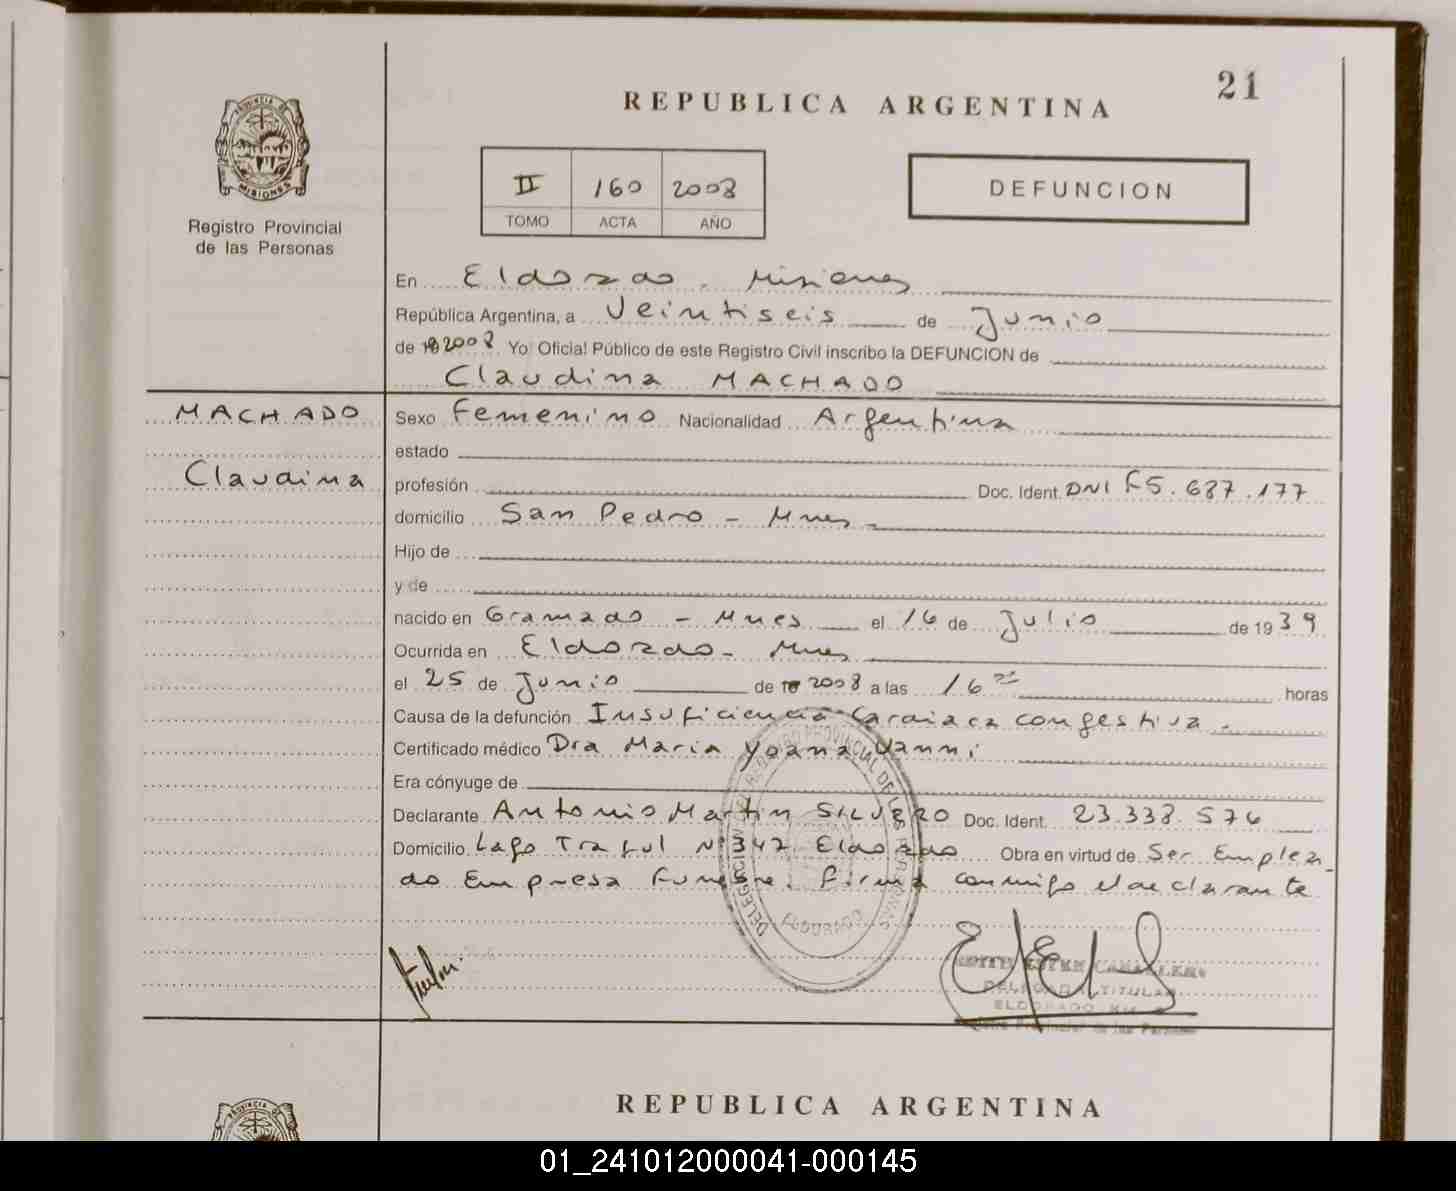 21
REPUBLICA ARGENTINA
PROVINCIA DE
MISIONES
Registro Provincial
de las Personas
II 160 2008
TOMO ACTA AÑO
DEFUNCION
En Eldorado. Misiones
República Argentina, a Veintiseis de Junio
de 19 2008 Yo Oficial Público de este Registro Civil inscribo la DEFUNCION de
Claudina MACHADO
MACHADO
Claudina
Sexo Femenino Nacionalidad Argentina
estado
profesión Doc. Ident. DNI F5.687.177
domicilio San Pedro - Mnes -
Hijo de
y de
nacido en Gramado - Mnes el 16 de Julio de 1939
Ocurrida en Eldorado - Mnes
el 25 de Junio de 2008 a las 16 horas
Causa de la defunción Insuficiencia Cardiaca congestiva -
Certificado médico Dra Maria Yoana Vanni
Era cónyuge de
Declarante Antonio Martin SILVERO Doc. Ident. 23.338.576
Domicilio Lago Traful Nº 347 Eldorado Obra en virtud de Ser Emplea-
do Empresa Funebre. Firma conmigo el declarante
DELEGACION REGISTRO PROVINCIAL DE LAS PERSONAS
ELDORADO
CABALLERO
DELEGADA TITULAR
ELDORADO
Registro Provincial de las Personas
REPUBLICA ARGENTINA
PROVINCIA DE
01_241012000041-000145